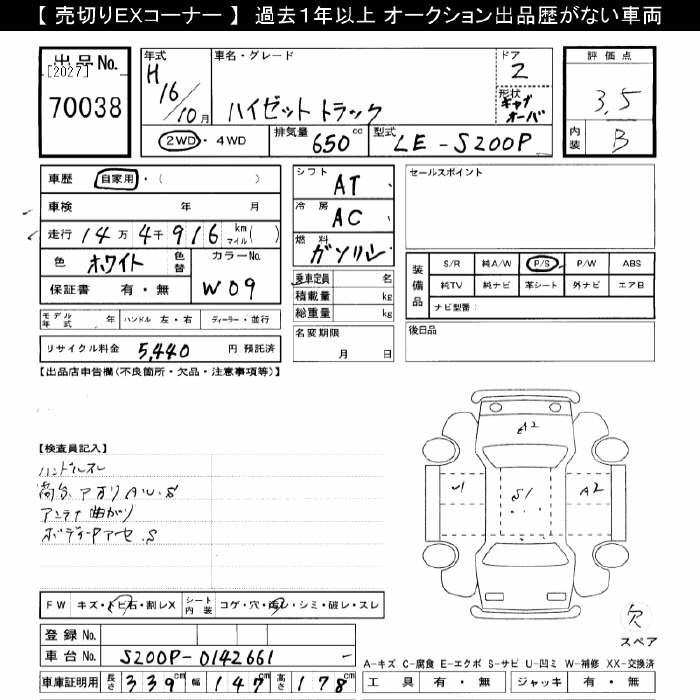 【 売切りEXコーナー 】 過去１年以上 オークション出品歴がない車両
出品No.
[2027]
70038
年式
H
16/10月
車名・グレード
ハイゼット トラック
ドア
2
形状
評価点
3.5
内装
B
2WD・4WD
排気量
650cc
型式
LE-S200P
車歴
自家用・( )
車検 年 月
走行 14万 4千 916 km マイル( )
色 ホワイト 色替
カラーNo.
W09
保証書 有・無
シフト
AT
冷房
AC
燃料
ガソリン
乗車定員 名
積載量 kg
総重量 kg
名変期限
月 日
セールスポイント
装備品
S/R 純A/W P/S P/W ABS
純TV 純ナビ 革シート 外ナビ エアB
ナビ型番:
後日品
モデル年式 年
ハンドル 左・右
ディーラー・並行
リサイクル料金 5,440 円 預託済
【出品店申告欄(不良箇所・欠品・注意事項等)】
【検査員記入】
ハンドルスレ
荷台 アオリ AU.S
アンテナ曲がり
A2
U1
S1
A2
FW キズ・トビ石・割レX
シート内装 コゲ・穴・汚レ・シミ・破レ・スレ
欠
スペア
登録No.
車台No. S200P-0142661
車庫証明用 長さ 339 幅 147 高さ 178
A-キズ C-腐食 E-エクボ S-サビ U-凹ミ W-補修 XX-交換済
工具 有・無 ジャッキ 有・無